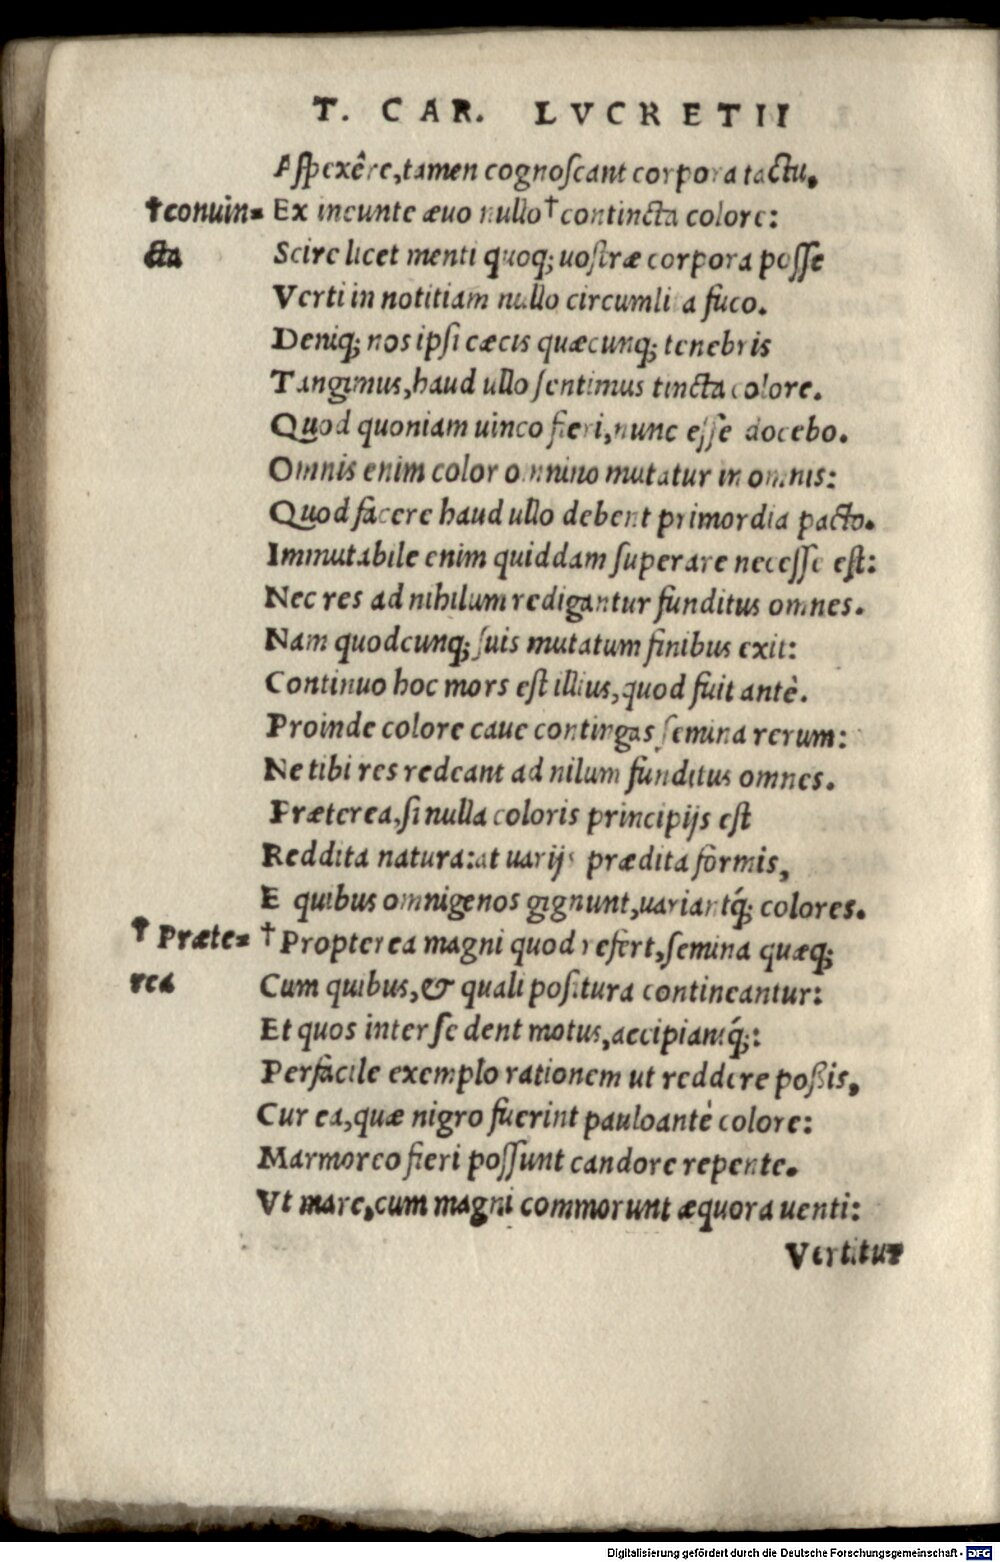 T. CAR. LVCRETII
Aſpexêre, tamen cognoſcant corpora tactu.
†conuin=
cta
Ex ineunte æuo nullo †contincta colore:
Scire licet menti quoq; uoſtræ corpora poſſe
Verti in notitiam nullo circumlita fuco.
Deniq; nos ipſi cæcis quæcunq; tenebris
Tangimus, haud ullo ſentimus tincta colore.
Quod quoniam uinco fieri, nunc eſſe docebo.
Omnis enim color omnino mutatur in omnis:
Quod facere haud ullo debent primordia pacto.
Immutabile enim quiddam ſuperare neceſſe eſt:
Nec res ad nihilum redigantur funditus omnes.
Nam quodcunq; ſuis mutatum finibus exit:
Continuo hoc mors eſt illius, quod fuit antè.
Proinde colore caue contingas ſemina rerum:
Ne tibi res redeant ad nilum funditus omnes.
Præterea, ſi nulla coloris principijs eſt
Reddita natura: at uarijs prædita formis,
E quibus omnigenos gignunt, uariantq́; colores.
† Præte=
rea
†Propterea magni quod refert, ſemina quæq;
Cum quibus, & quali poſitura contineantur:
Et quos inter ſe dent motus, accipiantq́;:
Perfacile exemplo rationem ut reddere poßis,
Cur ea, quæ nigro fuerint pauloantè colore:
Marmoreo fieri poſſunt candore repente.
Vt mare, cum magni commorunt æquora uenti:
Vertitur
Digitalisierung gefördert durch die Deutsche Forschungsgemeinschaft - DFG